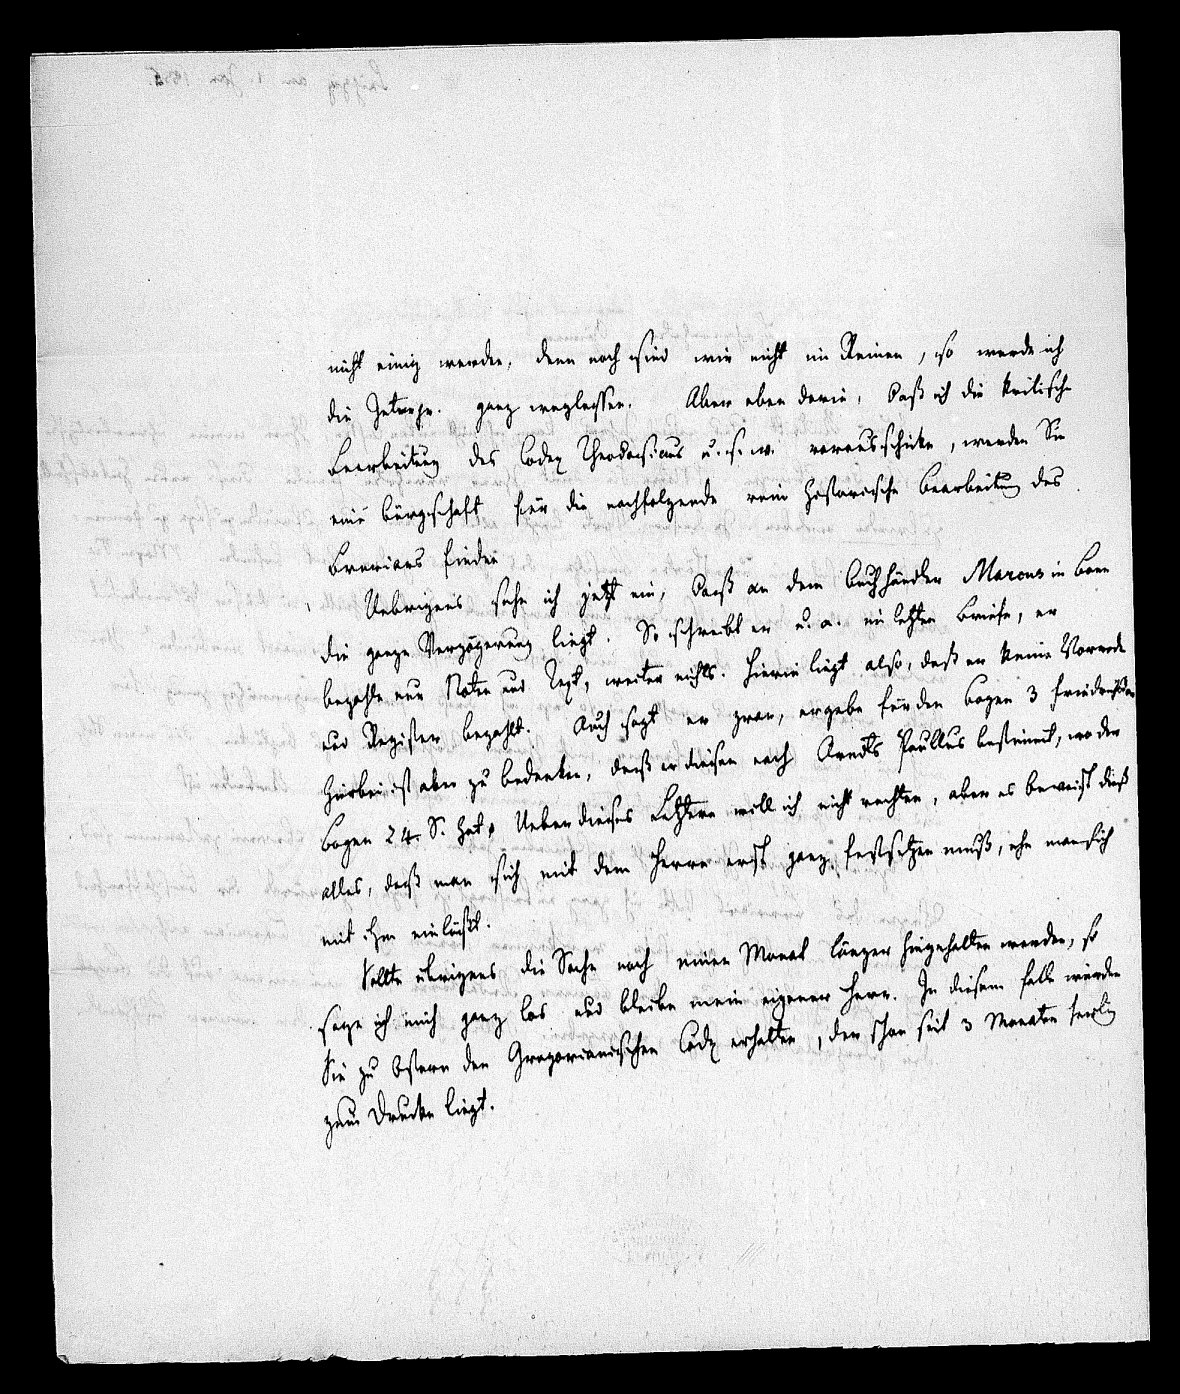 nicht einig werden, denn noch sind wir nicht im Reinen, so werde ich
die Interpr. ganz weglassen. Aber eben darin, daß ich die kritische
Bearbeitung des Codex Theodosianus u. s. w. vorausschicke, werden Sie
eine Bürgschaft für die nachfolgende rein historische Bearbeitung des
Breviars finden
Uebrigens sehe ich jetzt ein, daß an dem Buchhändler Marcus in Bonn
die ganze Verzögerung liegt. So schreibt er u. a. im letzten Briefe, er
bezahle nur Noten und Text, weiter nichts. Hierin liegt also, daß er keine Vorrede
und Register bezahlt. Auch sagt er zwar, er gebe für den Bogen 3 Friedrichsd'or
Hierbei ist aber zu bedenken, daß er diesen nach Arndts Paullus bestimmt, wo der
Bogen 24 S. hat. Ueber dieses Letztere will ich nicht rechten, aber es beweist dieß
alles, daß man sich mit dem Herrn erst ganz festsetzen muß, ehe man sich
mit ihm einläßt.
Sollte übrigens die Sache noch einen Monat länger hingehalten werden, so
sage ich mich ganz los und bleibe mein eigener Herr. In diesem Falle würden
Sie zu Ostern den Gregorianischen Codex erhalten, der schon seit 3 Monaten fertig
zum Drucke liegt.